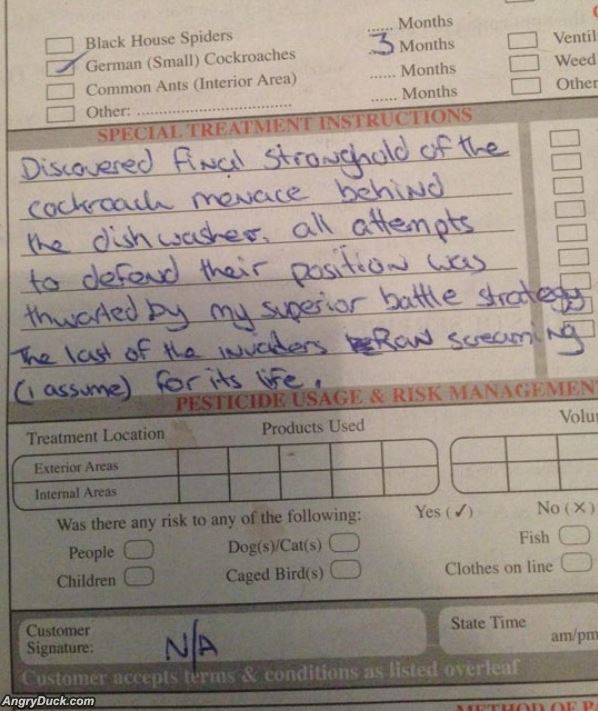 Black House Spiders ...... Months
German (Small) Cockroaches 3 Months Ventil
Common Ants (Interior Area) ...... Months Weed
Other: ........................................ ...... Months Other
SPECIAL TREATMENT INSTRUCTIONS
Discovered final stronghold of the
cockroach menace behind
the dishwasher, all attempts
to defend their position was
thwarted by my superior battle strategy
The last of the invaders Ran screaming
(i assume) for its life.
PESTICIDE USAGE & RISK MANAGEMEN
Treatment Location Products Used Volu
Exterior Areas
Internal Areas
Was there any risk to any of the following: Yes (✓) No (✕)
People Dog(s)/Cat(s) Fish
Children Caged Bird(s) Clothes on line
Customer State Time
Signature: N/A am/pm
Customer accepts terms & conditions as listed overleaf
AngryDuck.com METHOD OF PA